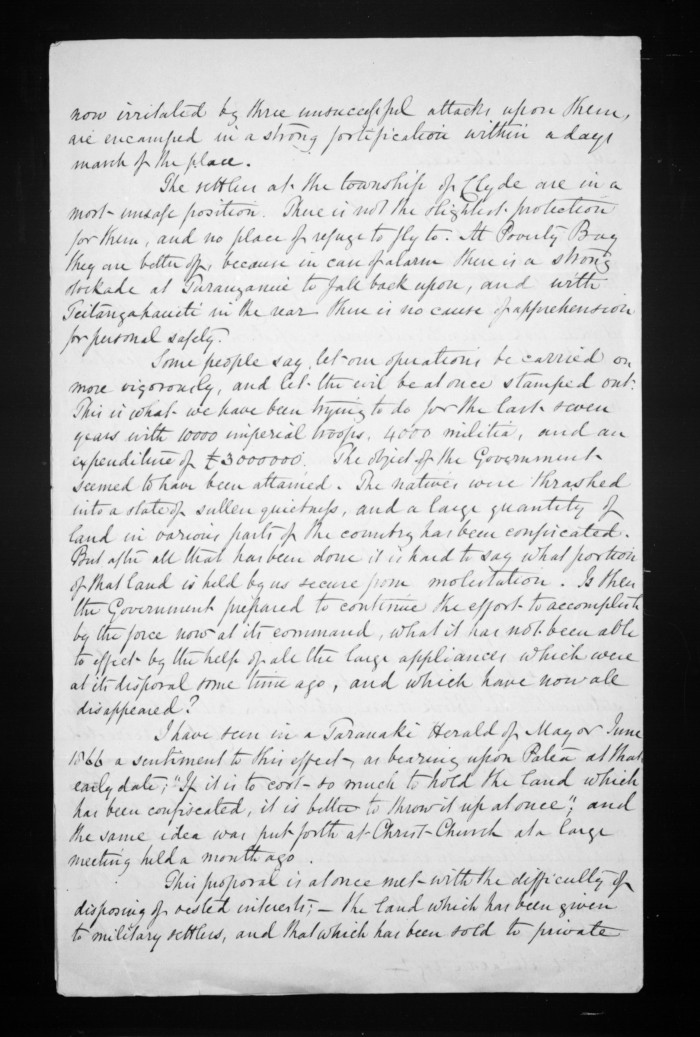 now irritated by three unsuccessful attacks upon them,
are encamped in a strong fortification within a days
march of the place.
The settlers at the township of Clyde are in a
most unsafe position. There is not the slightest protection
for them, and no place of refuge to fly to. At Poverty Bay
they are better off, because in case of alarm there is a strong
stockade at Turanganui to fall back upon, and with
in the rear there is no cause of apprehension
for personal safety.
Some people say, let our operations be carried on
more vigorously, and let the evil be at once stamped out.
This is what we have been trying to do for the last seven
years with 10000 imperial troops, 4000 militia, and an
expenditure of £3000000. The object of the Government
seemed to have been attained. The natives were thrashed
into a state of sullen quietness, and a large quantity of
land in various parts of the country has been confiscated.
But after all that has been done it is hard to say what portion
of that land is held by us secure from molestation. Is then
the Government prepared to continue the effort to accomplish
by the force now at its command, what it has not been able
to effect by the help of all the large appliances which were
at its disposal some time ago, and which have now all
disappeared?
I have seen in a Taranaki Herald of May or June
1866 a sentiment to this effect, as bearing upon Patea at that
early date; "If it is to cost so much to hold the land which
has been confiscated, it is better to throw it up at once"; and
the same idea was put forth at Christ Church at a large
meeting held a month ago.
This proposal is at once met with the difficulty of
disposing of vested interests; – the land which has been given
to military settlers, and that which has been sold to private